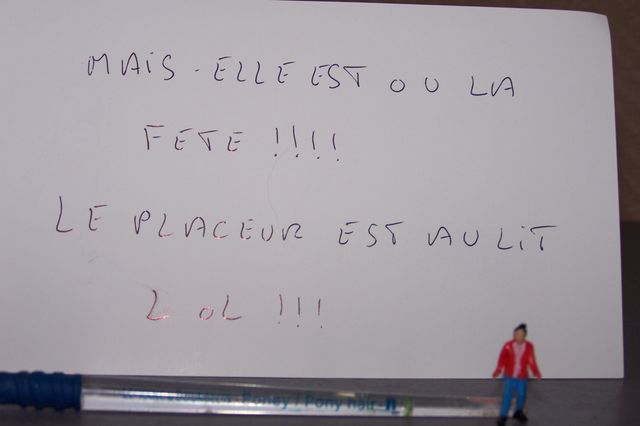 MAIS. ELLE EST OU LA
FETE !!!!
LE PLACEUR EST AU LIT
LOL !!!
Poney / Pony hair